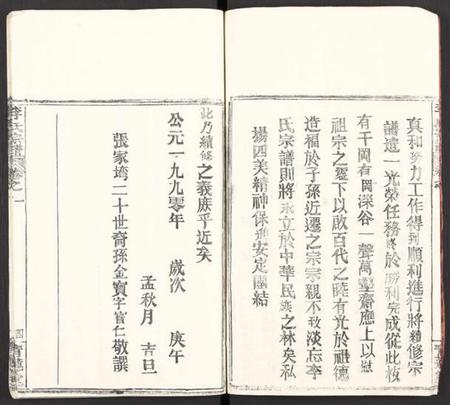 真和努力工作得到順利進行將續修宗
譜這一光榮任務終於勝利完成從此枝
有千岡看岡深谷一聲萬壑齊應上以慰
祖宗之靈下以啟百代之曉有光於祖德
造福於子孫近遷之宗宗親不致淡忘李
氏宗譜則將永立於中華民族之林矣私
場四美精神保進安定團結
此乃續修之義庶乎近矣
公元一九九零年 歲次 庚午
孟秋月 吉旦
張家垮二十世裔孫金寶字官仁敬譔
李氏宗譜 卷之一
四
青蓮堂